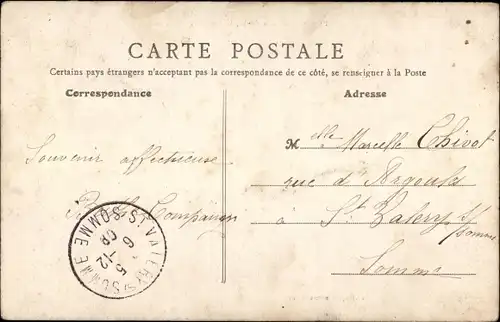 CARTE POSTALE
Certains pays étrangers n'acceptant pas la correspondance de ce côté, se renseigner à la Poste
Correspondance
Adresse
Melle Marcelle Thivot
Souvenir affectueuse
rue d'Argoule
à St Valery s/
Somme
Somme
ST VALERY S/SOMME SOMME
6
5-12
08